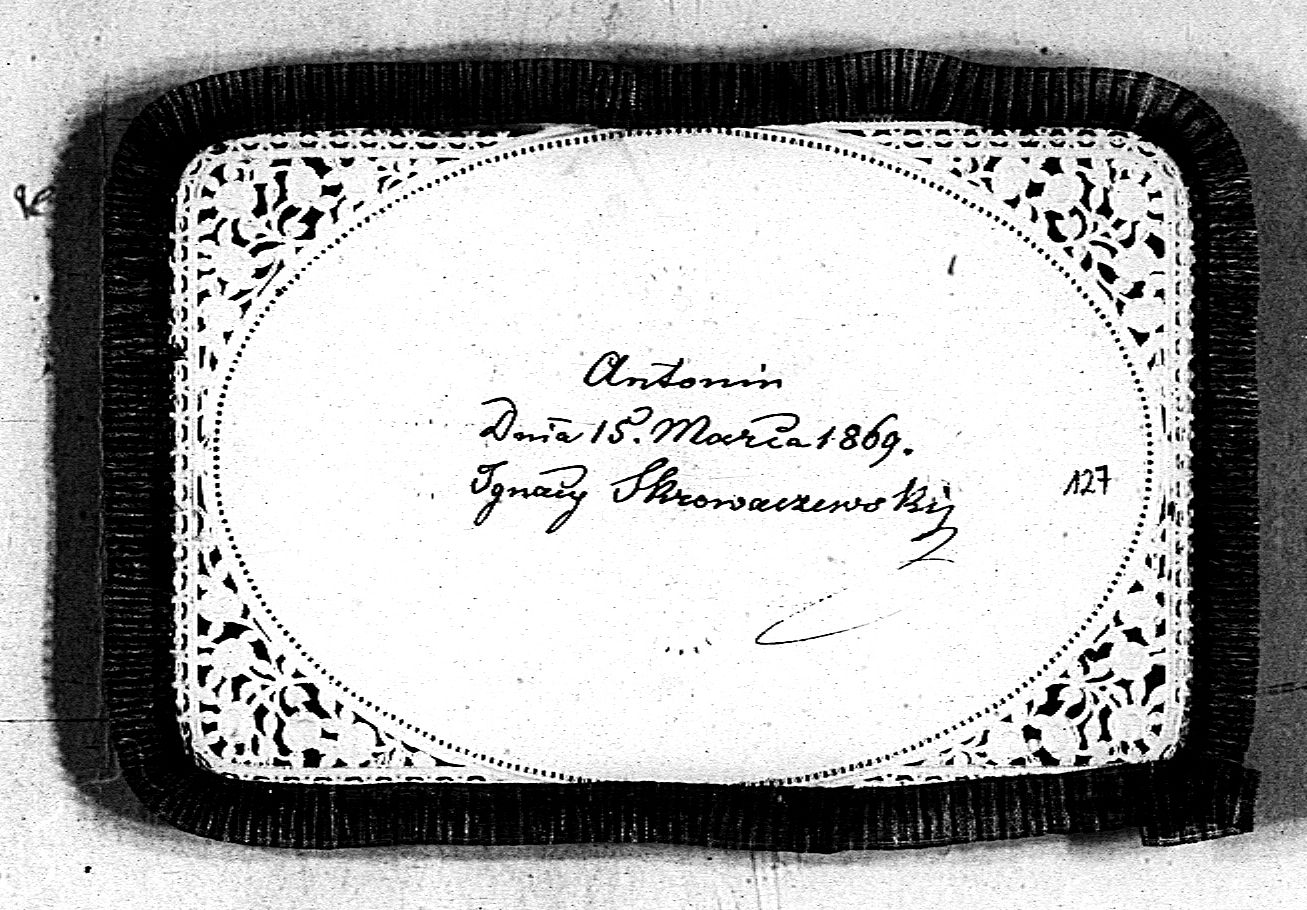 Antonin
Dnia 15. Marca 1869.
Ignacy Skrowaczewski
127